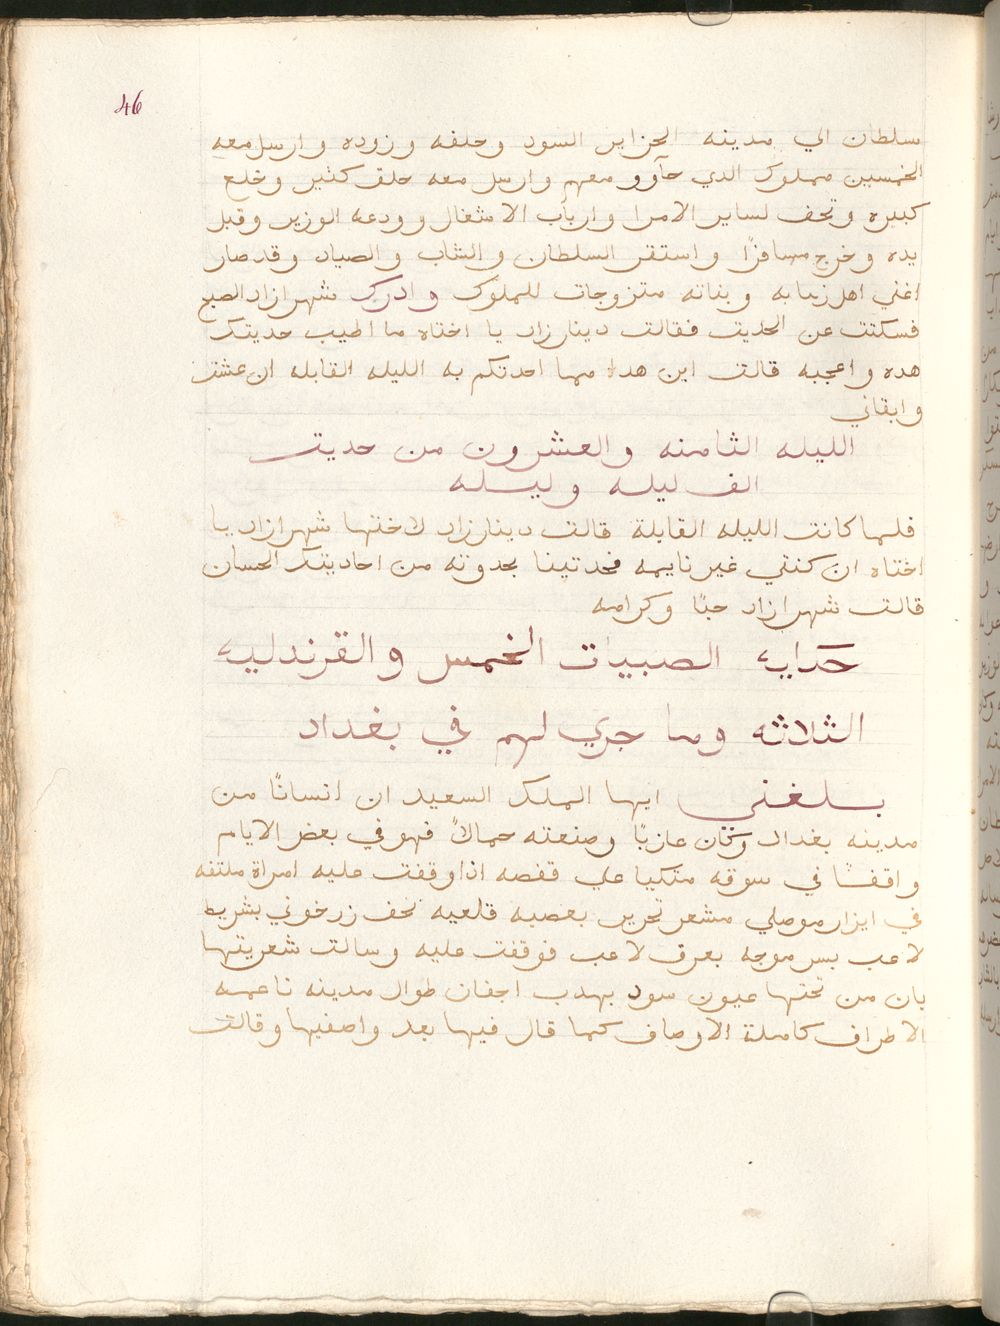 46
سلطان الي مدينه الجزاير السود وحلفه وزوده وارسل معه
الخمسين مملوك الدي جآوو معهم وارسل معه خلق كثير وخلع
كبيره وتحف لساير الامرا وارباب الاشغال وودعه الوزير وقبل
يده وخرج مسافرًا واستقر السلطان والشاب والصياد وقد صار
اغني اهل زمانه وبناته متزوجات للملوك وادرك شهرازاد الصبح
فسكتت عن الحديت فقالت دينارزاد يا اختاه ما اطيب حديتك
هده واعجبه قالت اين هدا مما احدتكم به الليله القابله ان عشت
وابقاني
الليله الثامنه والعشرون من حديت
الف ليله وليله
فلما كانت الليله القابلة قالت دينارزاد لاختها شهرازاد يا
اختاه ان كنتي غير نايمه فحدتينا بحدوته من احاديتك الحسان
قالت شهرازاد حبًا وكرامه
حكاية الصبيات الخمس والقرندلية
الثلاثه وما جري لهم في بغداد
بلغني ايها الملك السعيد ان انسانًا من
مدينه بغداد وكان عازبًا وصنعته حمالاً فهو في بعض الايام
واقفًا في سوقه متكيا علي قفصه اذا وقفت عليه امراة ملتفه
في ايزار موصلي مشعر بحرير بعصبه قلعيه بخف زرخوني بشريط
لاعب بسرموجه بعرق لاعب فوقفت عليه وسالت شعريتها
بان من تحتها عيون سود بهدب اجفان طوال مدينه ناعمه
الاطراف كاملة الاوصاف كما قال فيها بعد واصفيها وقالت